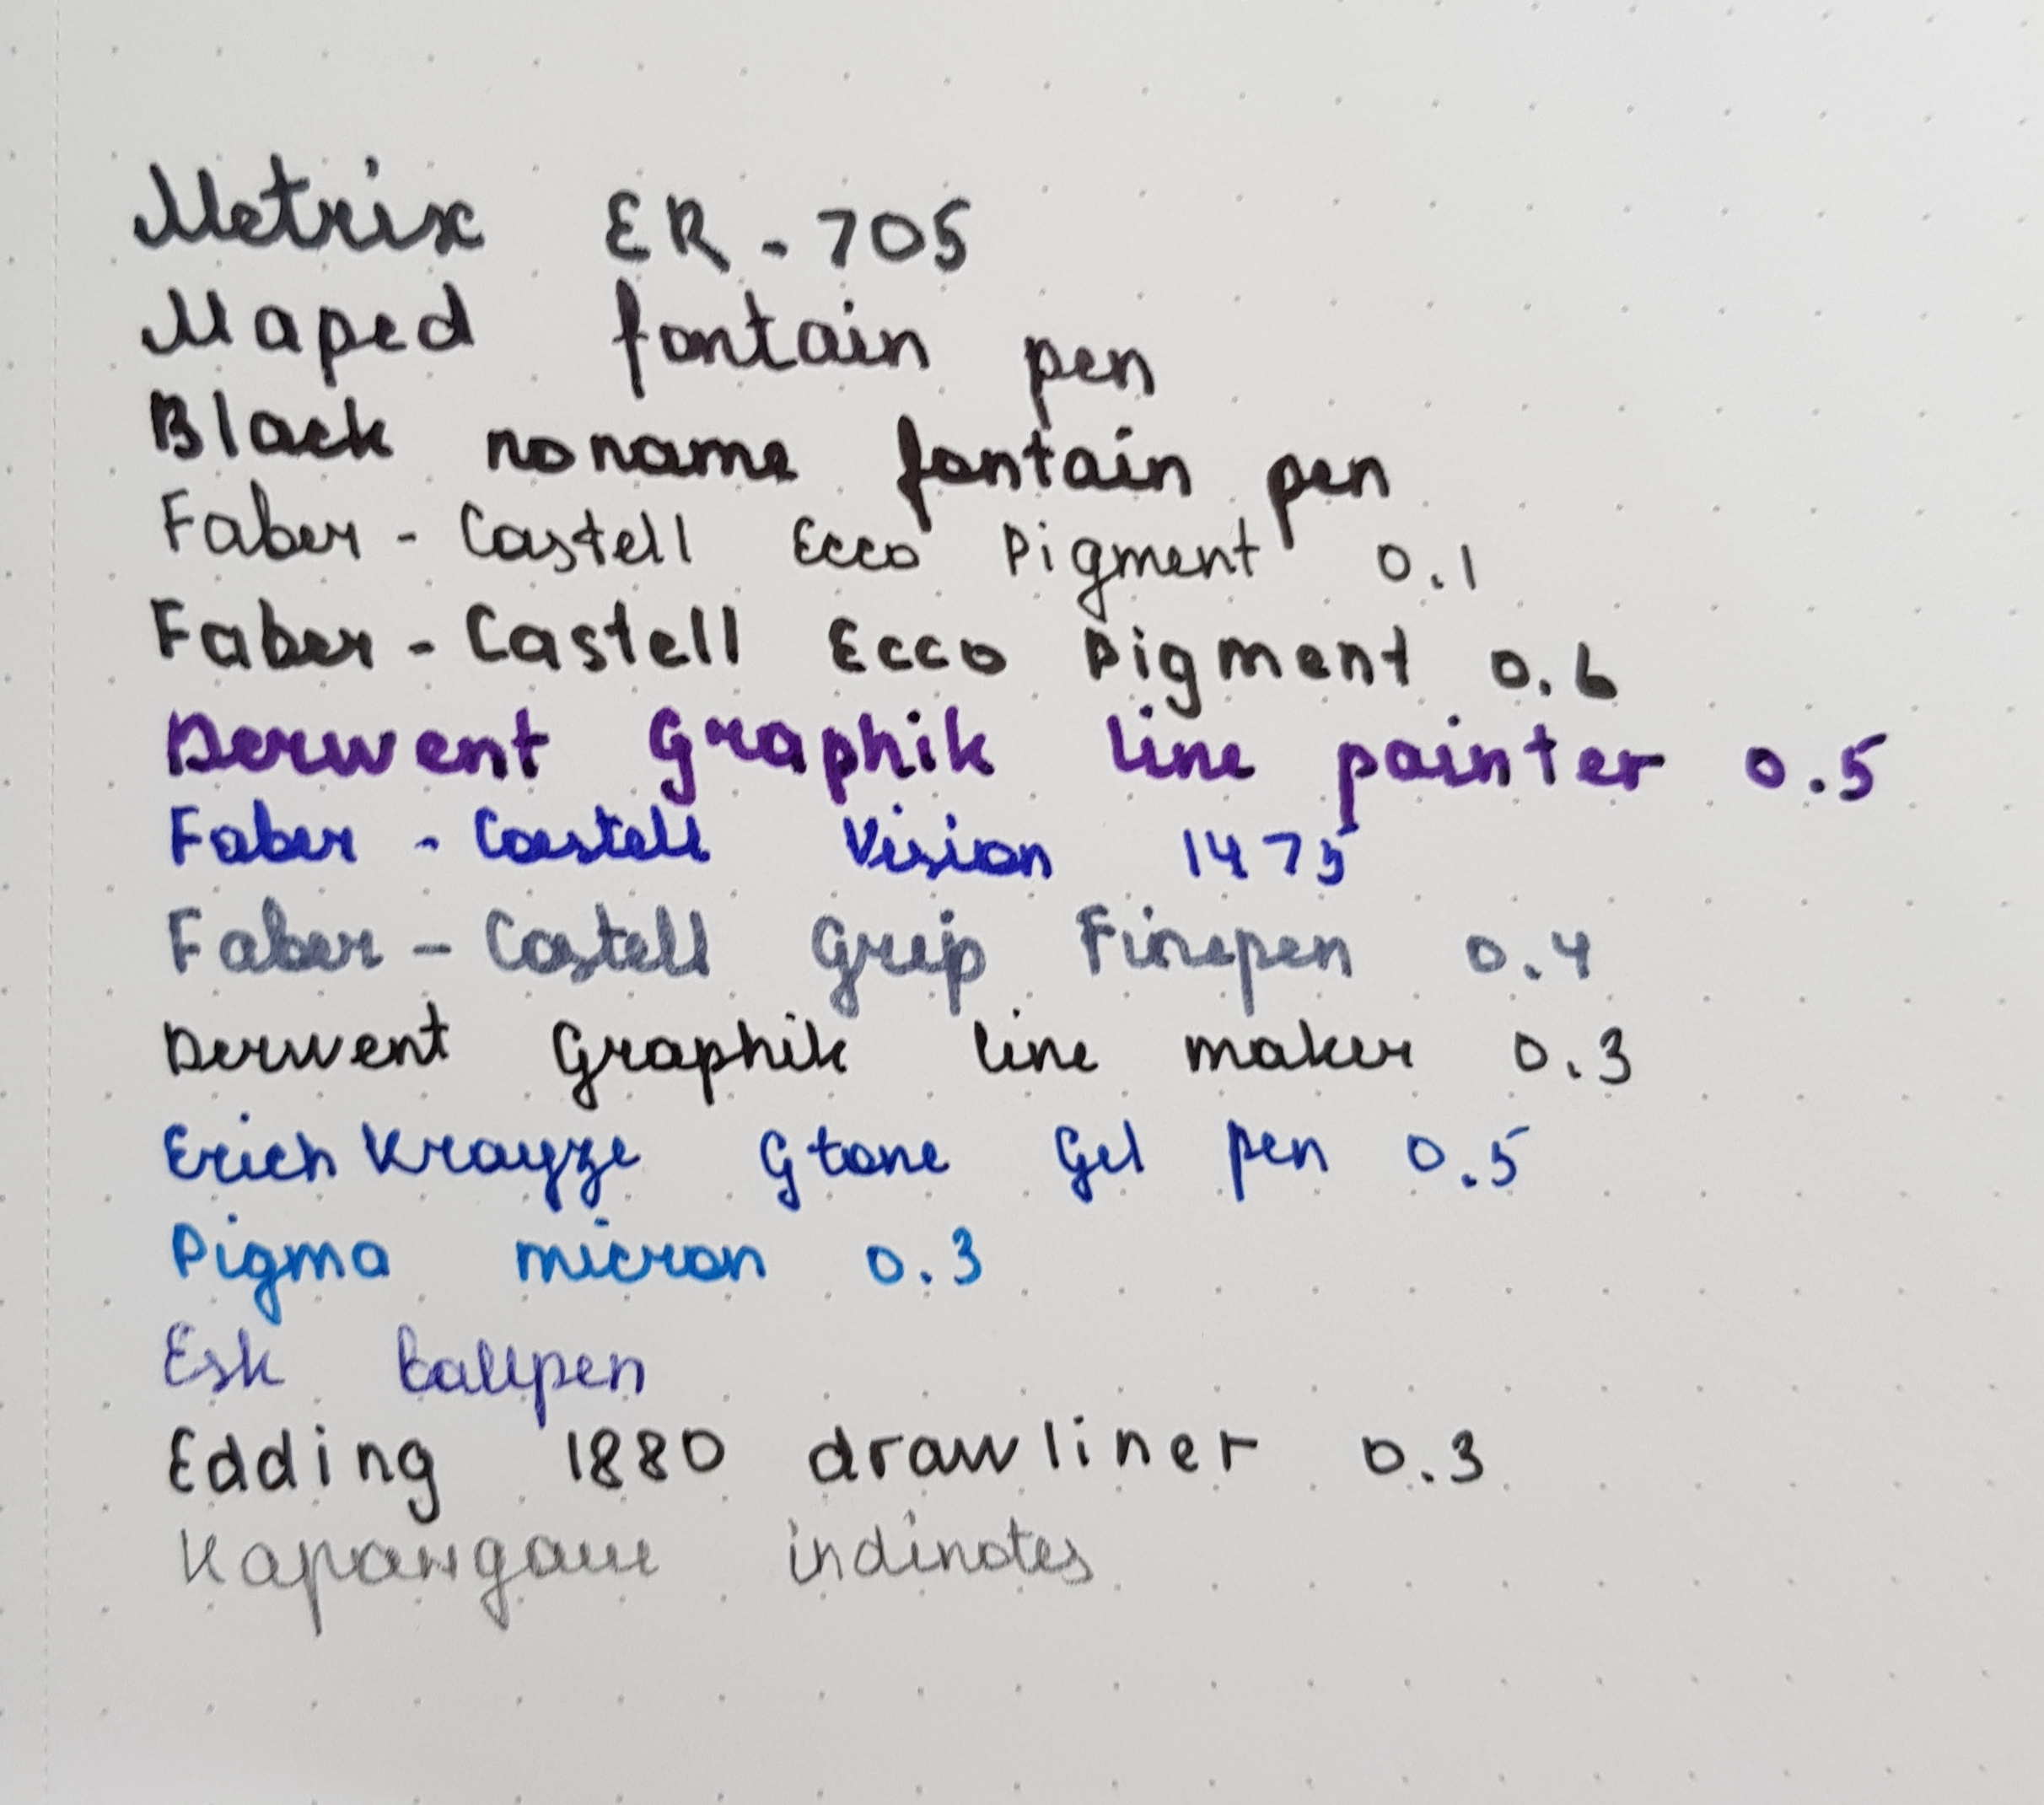 Metrix ER-705
Maped fontain pen
Black noname fontain pen
Faber-Castell Ecco Pigment 0.1
Faber-Castell Ecco Pigment 0.6
Derwent Graphik line painter 0.5
Faber-Castell Vision 1475
Faber-Castell Grip Finepen 0.4
Derwent Graphik line maker 0.3
Erich Krayze Gtone Gel pen 0.5
Pigma micron 0.3
Esk ballpen
Edding 1880 drawliner 0.3
Карандаш indinotes